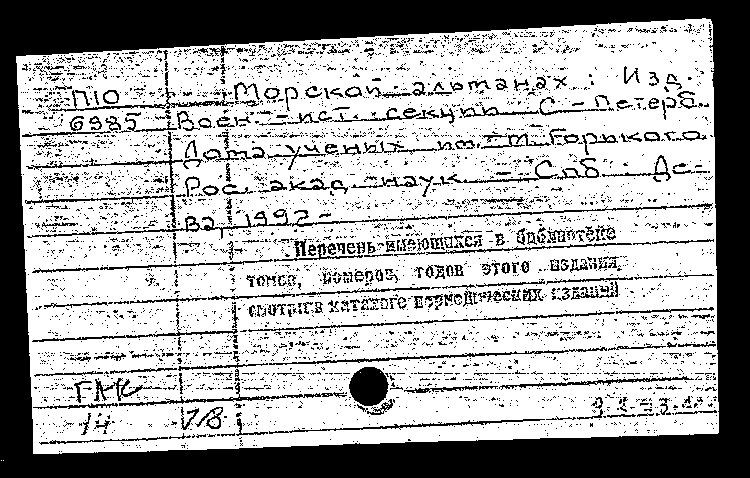 П10 Морской альманах : Изд.
6985 Воен.-ист. секции С.-Петерб.
Дома ученых им. М. Горького
Рос. акад. наук. - Спб : Ле-
ва, 1992-
Перечень имеющихся в библиотеке
томов, номеров, годов этого издания,
смотри в каталоге периодических изданий
ГАК
14 УВ